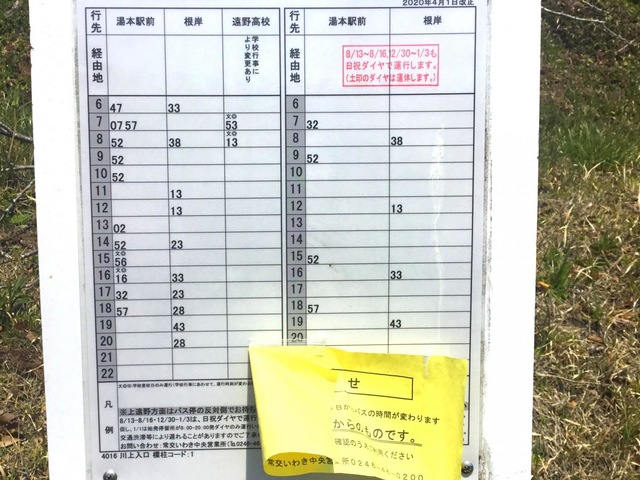 2020年4月1日改正
行先 湯本駅前 根岸 遠野高校 行先 湯本駅前 根岸
経由地 学校行事により変更あり 経由地
8/13~8/16,12/30~1/3も
日祝ダイヤで運行します。
(土印のダイヤは運休します。)
6 47 33 6
7 07 57 53 7 32
8 52 38 13 8 38
9 52 9 52
10 52 10
11 13 11
12 13 12 13
13 02 13
14 52 23 14
15 56 15 52
16 16 33 16 33
17 32 23 17
18 57 28 18 57
19 43 19 43
20 28 20
21
22
凡例
※上遠野方面はバス停の反対側でお待ち
8/13-8/16・12/30-1/3は、日祝ダイヤで運行
交通渋滞等により遅れることがありますのでご了承
お問い合わせ:常交いわき中央営業所(℡0246-
4016 川上入口 標柱コード:1
せ
日からバスの時間が変わります
からのものです。
確認のうえ
ください
常交いわき中央営業所0246-46-0200